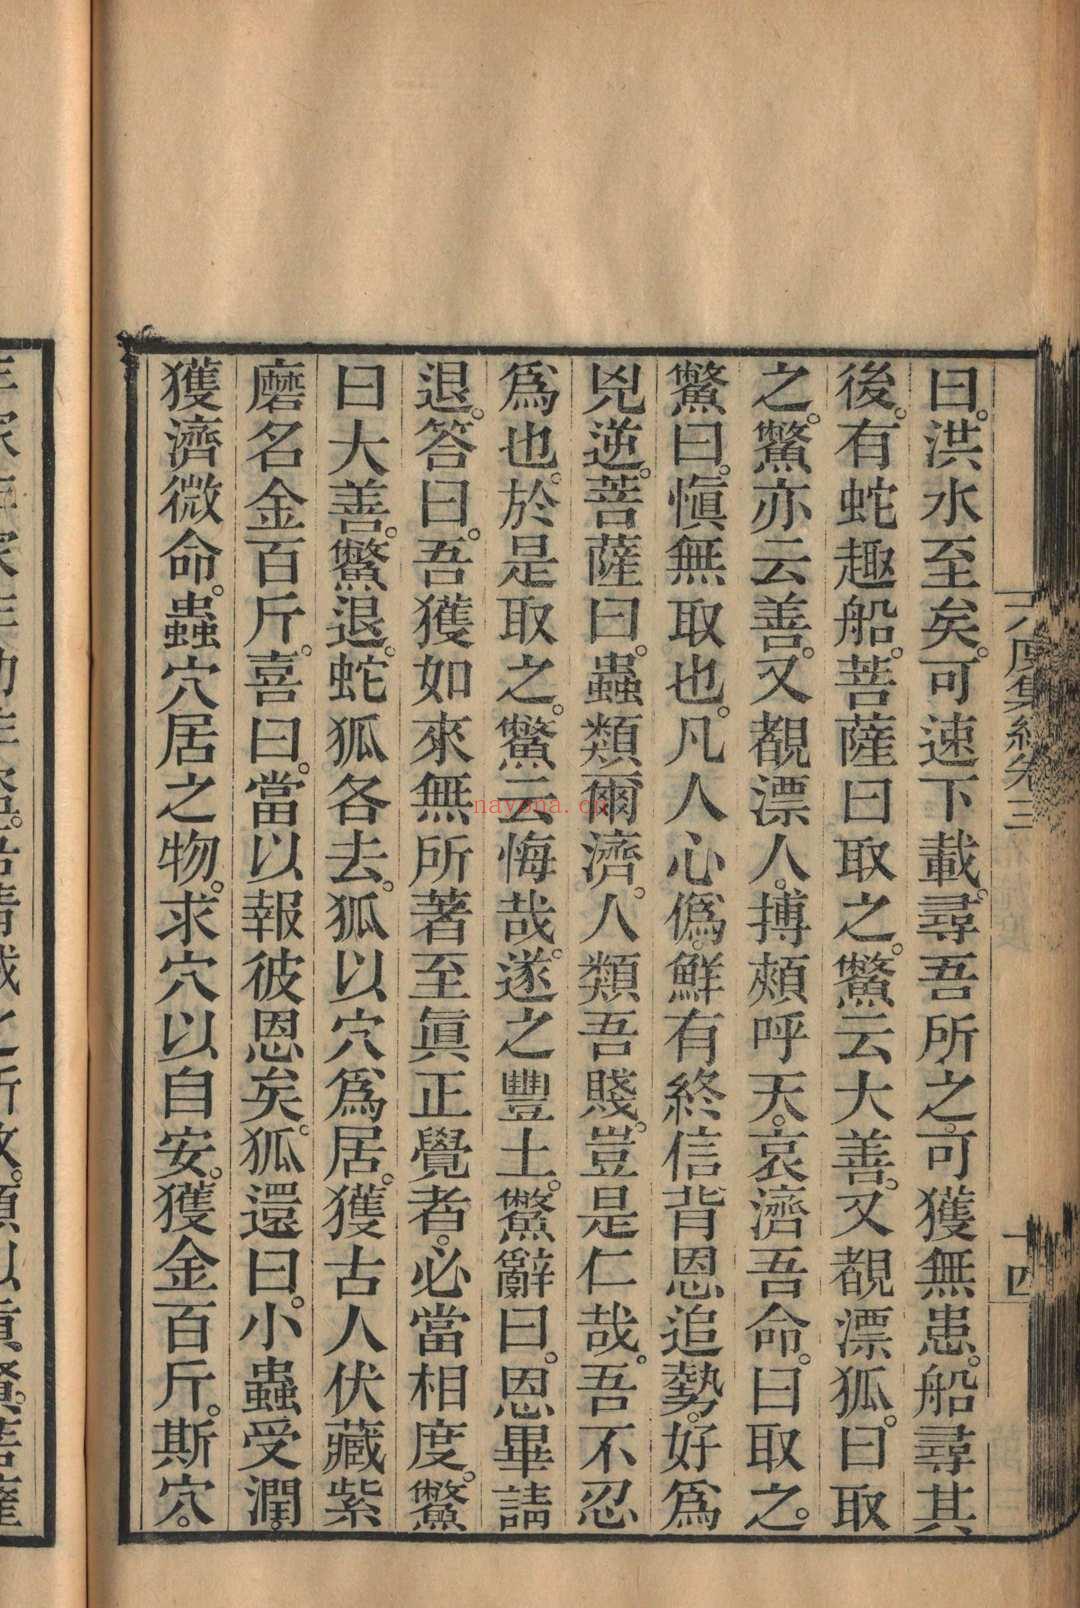 六度集經卷三
十四
曰。洪水至矣。可速下載。尋吾所之。可獲無患。船尋其
後。有蛇趣船。菩薩曰取之。鱉云大善。又覩漂狐。曰取
之。鱉亦云善。又覩漂人。搏頰呼天。哀濟吾命。曰取之。
鱉曰。愼無取也。凡人心僞。鮮有終信背恩追勢。好爲
兇逆。菩薩曰。蟲類爾濟。人類吾賤。豈是仁哉。吾不忍
爲也。於是取之。鱉云悔哉。遂之豐土。鱉辭曰。恩畢請
退。答曰。吾獲如來無所著至眞正覺者。必當相度。鱉
曰大善。鱉退。蛇狐各去。狐以穴爲居。獲古人伏藏紫
磨名金百斤。喜曰。當以報彼恩矣。狐還曰。小蟲受潤。
獲濟微命。蟲穴居之物。求穴以自安。獲金百斤。斯穴。
nayona.cn